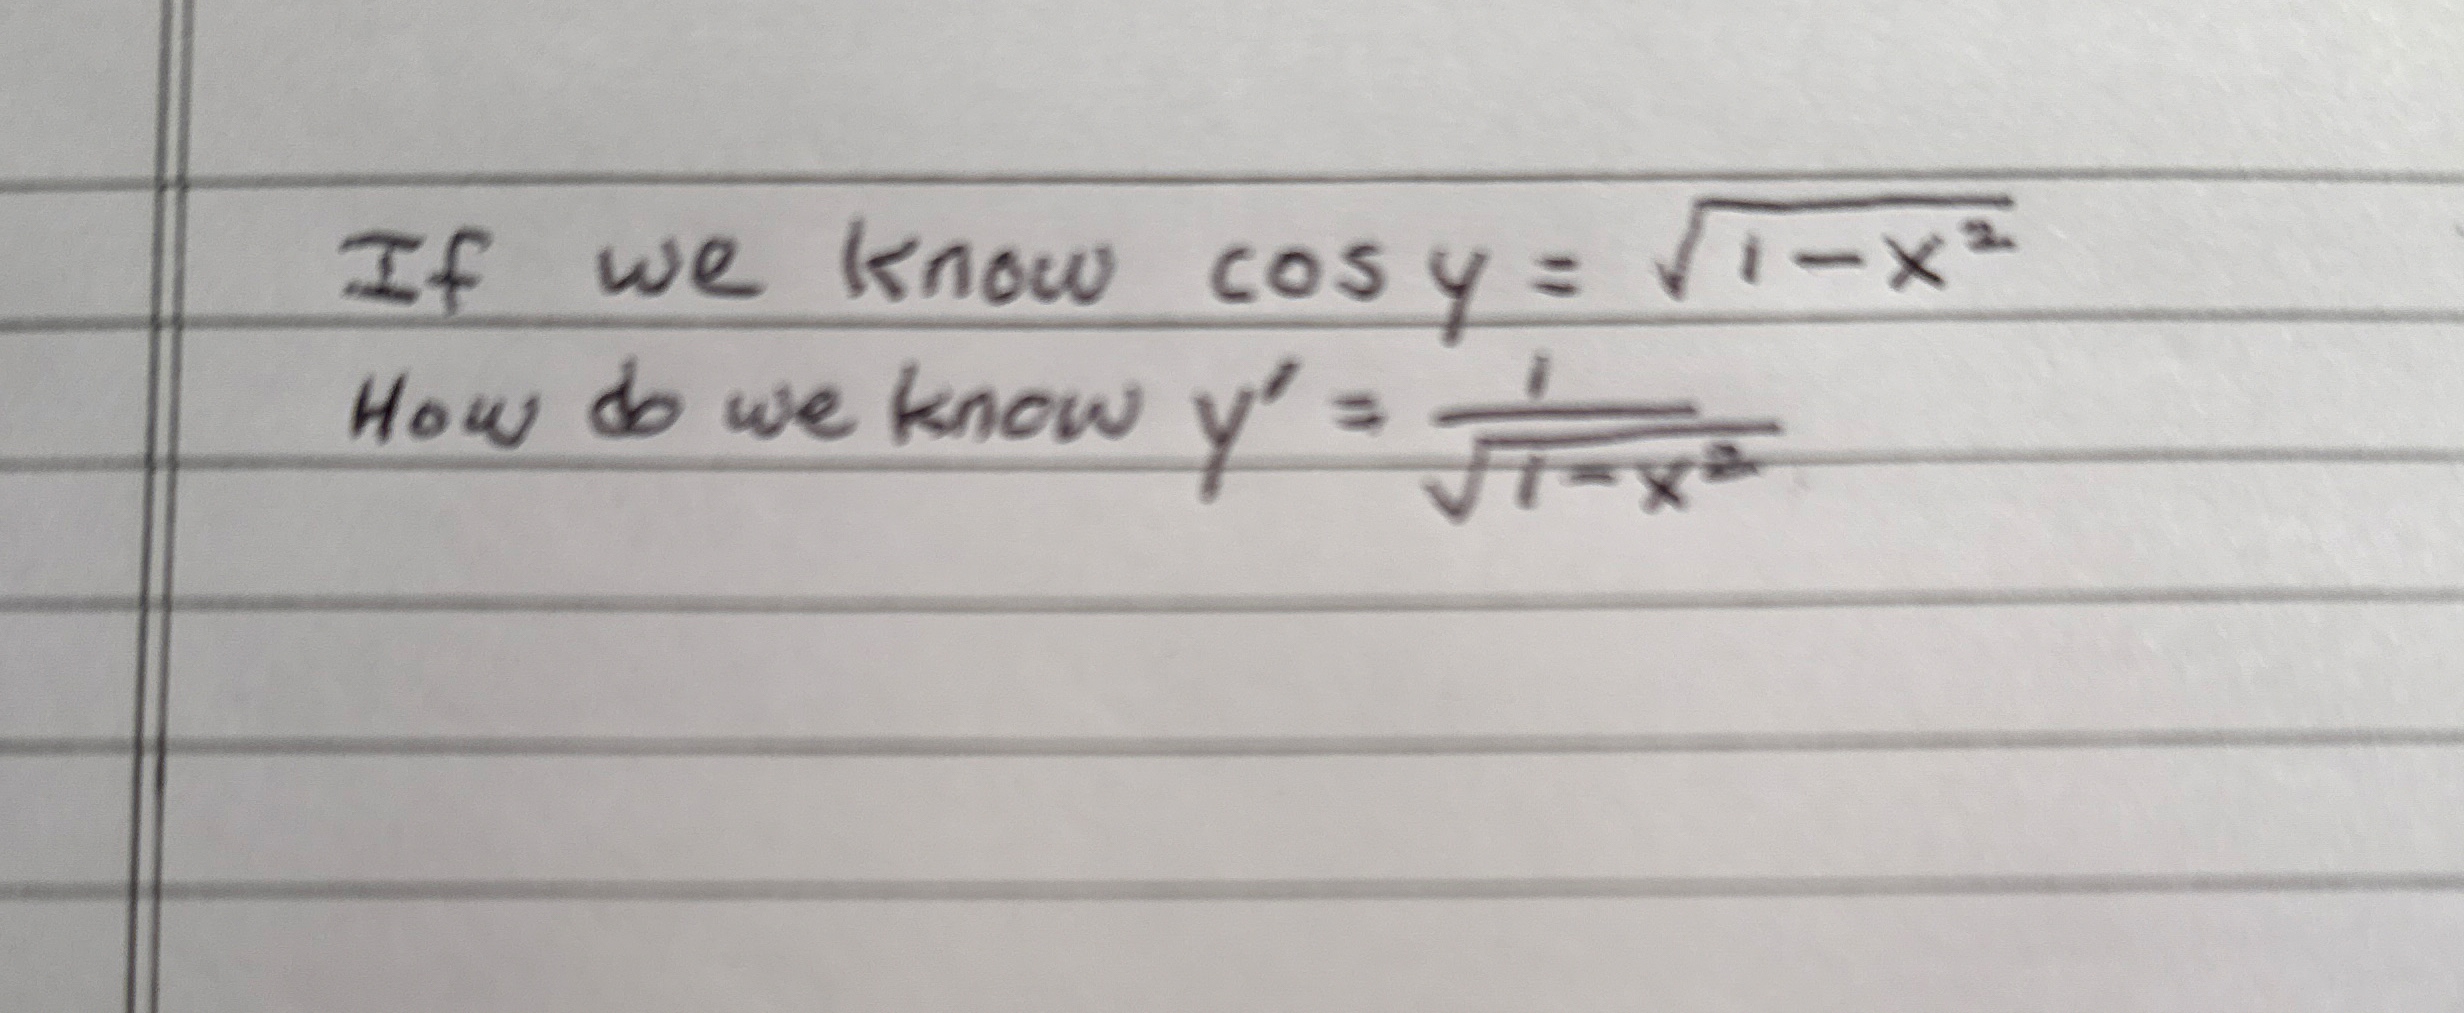 If we know cos y = √(1-x²)
How do we know y' = 1/√(1-x²)